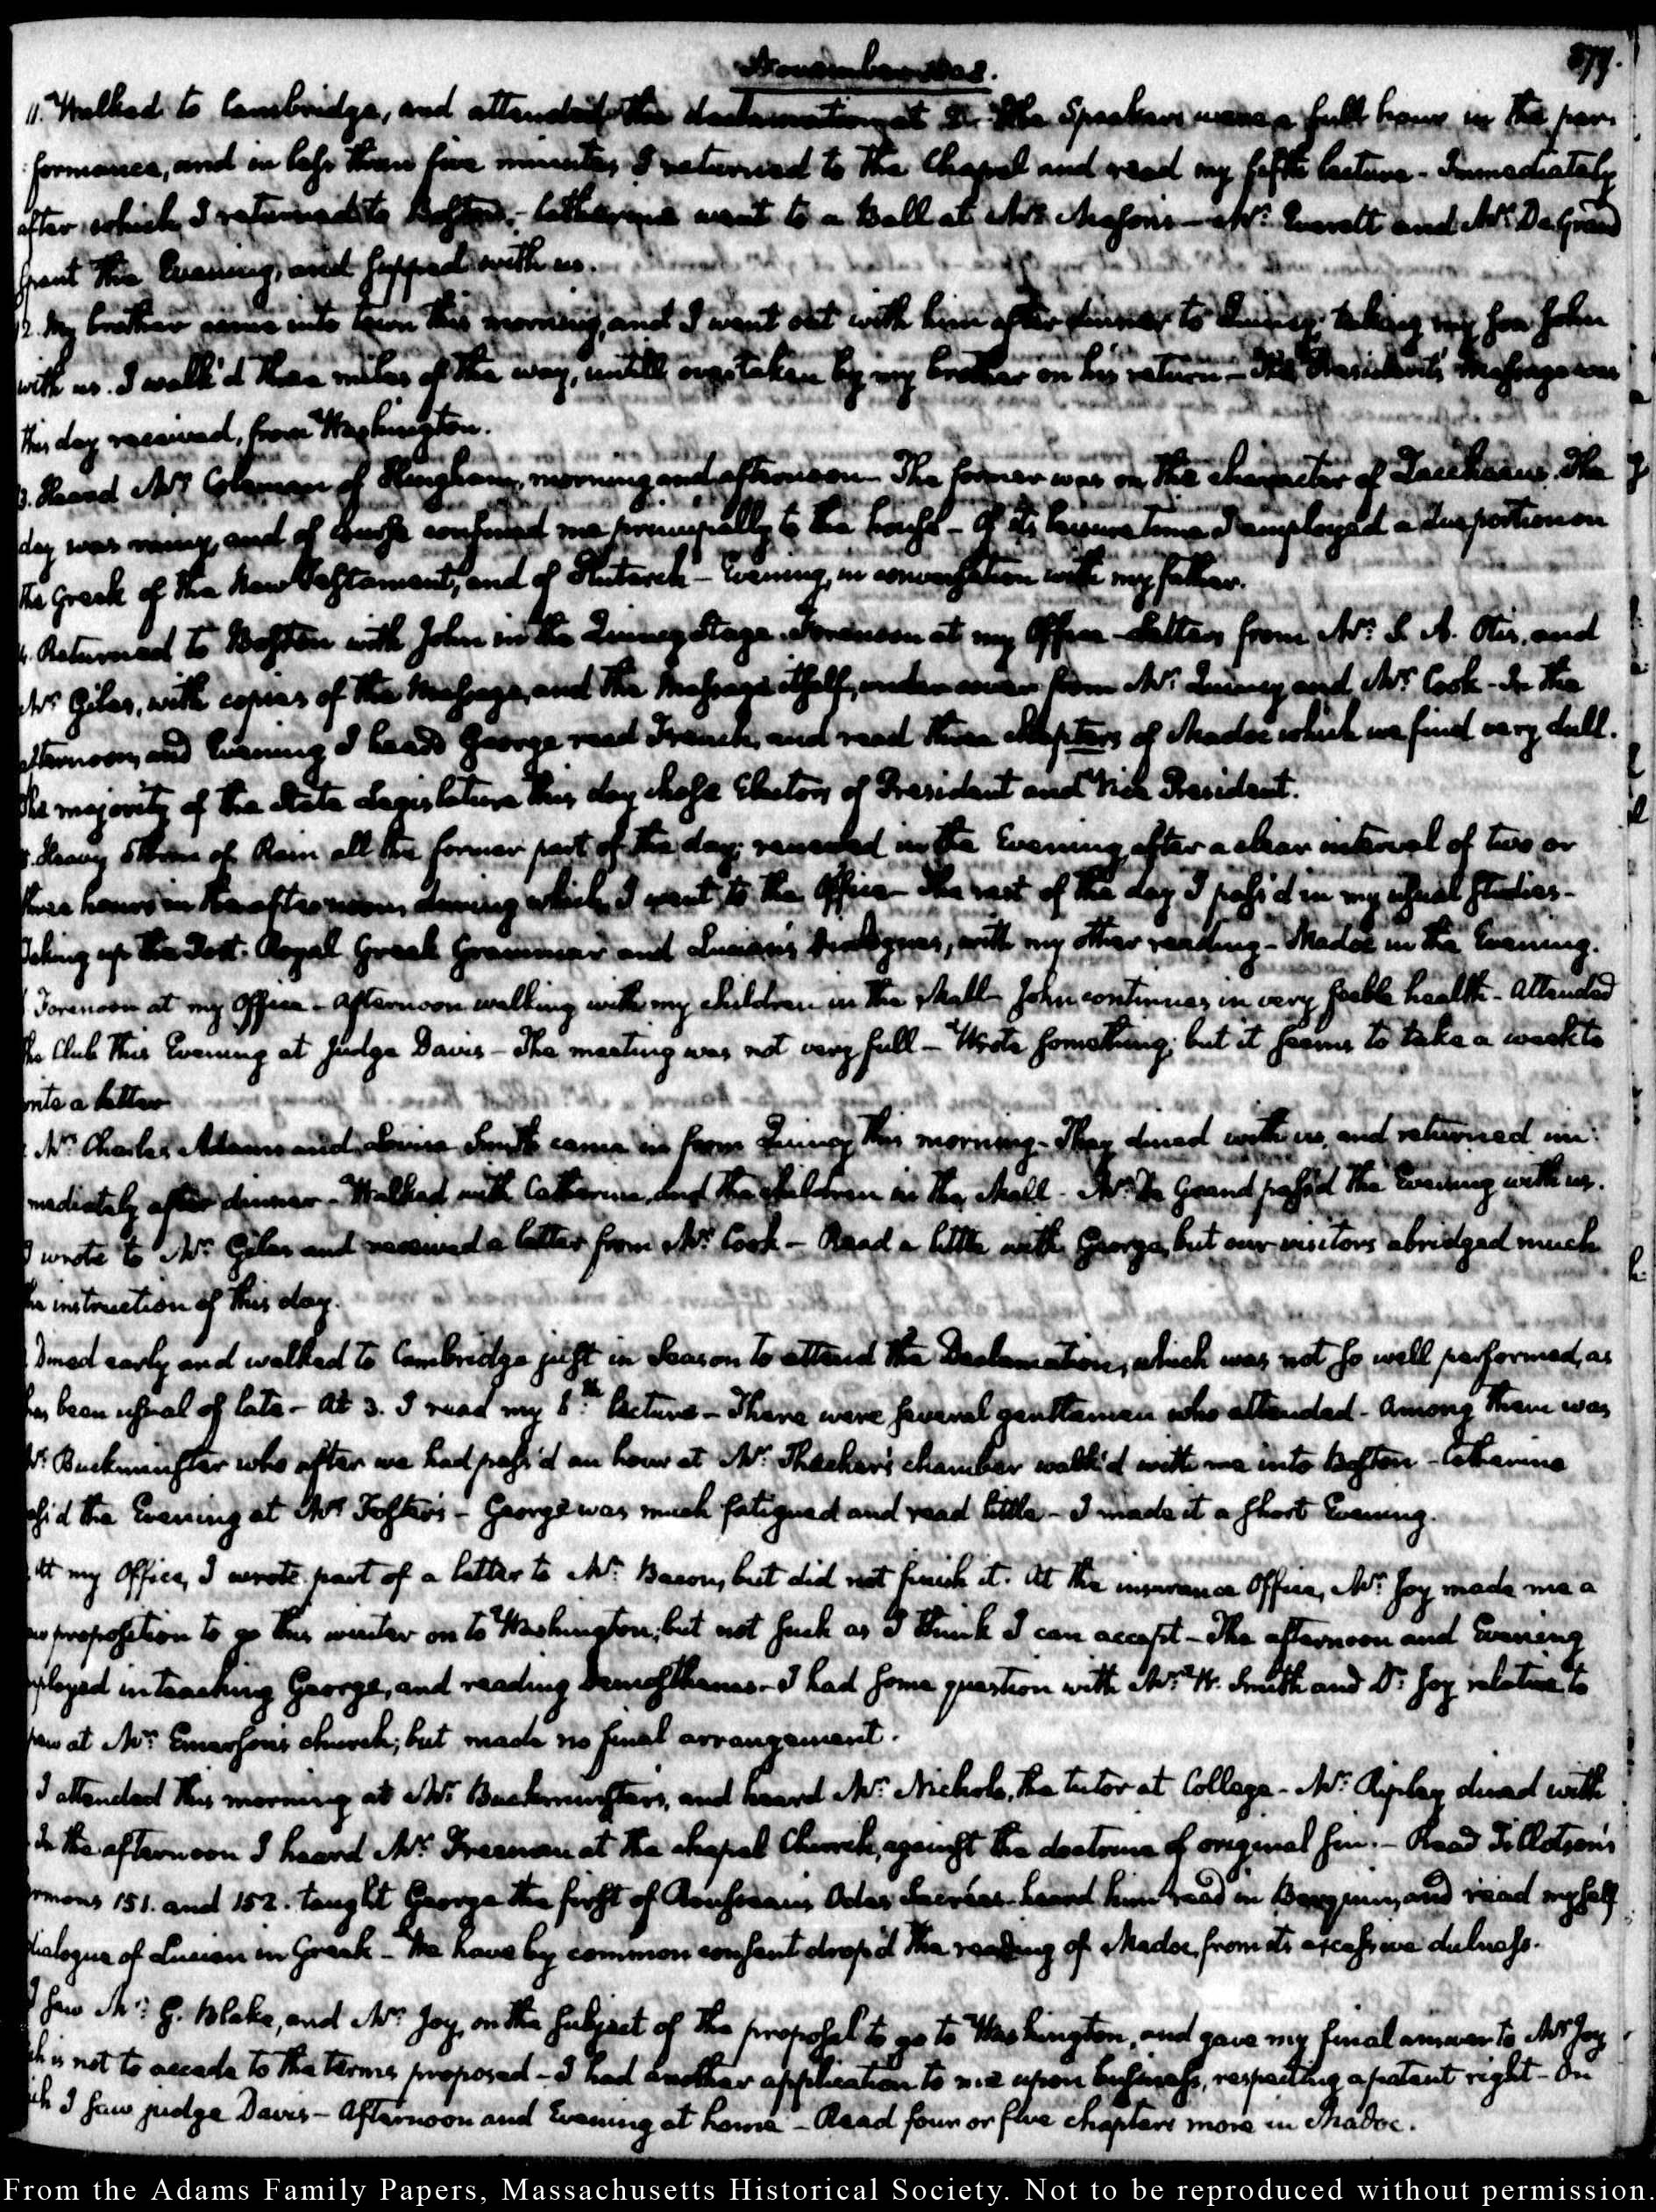 November 1808.
379.
11. Walked to Cambridge, and attended the declamation at 2. The Speakers were a full hour in the per-
formance, and in less than five minutes, I returned to the Chapel and read my fifth lecture - Immediately
after which I returned to Boston. - Catherine went to a Ball at Mrs. Mason's - Mr. Everett and Mr. De Grand
spent the Evening, and supped with us.
12. My brother came into town this morning, and I went out with him after dinner to Quincy; taking my son John
with us. I walk'd three miles of the way, untill overtaken by my brother on his return - The President's Message was
this day received, from Washington.
13. Heard Mr. Coleman of Hingham, morning and afternoon - The former was on the character of Zacchaeus. The
day was rainy, and of course confined me principally to the house - Of its leisure time I employed a due portion on
the Greek of the New Testament, and of Plutarch - Evening, in conversation with my father.
14. Returned to Boston with John in the Quincy Stage. Forenoon at my Office - Letters from Mr. S. A. Otis, and
Mr. Giles, with copies of the Message, and the Message itself, under cover from Mr. Quincy and Mr. Cook - In the
afternoon, and Evening I heard George read French, and read three chapters of Madoc which we find very dull.
The majority of the State Legislature this day chose Electors of President and Vice President.
15. Heavy Storm of Rain all the former part of the day; renewed in the Evening, after a clear interval of two or
three hours in the afternoon, during which I went to the Office - The rest of the day I pass'd in my usual studies -
Taking up the Port-Royal Greek Grammar and Lucian's Dialogues, with my other reading - Madoc in the Evening.
Forenoon at my Office - Afternoon walking with my children in the Mall - John continues in very feeble health - Attended
the Club this Evening at Judge Davis - The meeting was not very full - Wrote something; but it seems to take a week to
write a letter
Mrs. Charles Adams and Louisa Smith came in from Quincy this morning - They dined with us, and returned im-
mediately after dinner - Walked with Catherine, and the children in the Mall - Mr. De Grand pass'd the Evening with us.
I wrote to Mr. Giles and received a letter from Mr. Cook - Read a little with George, but our visitors abridged much
the instruction of this day.
Dined early and walked to Cambridge just in Season to attend the Declamation, which was not so well performed, as
has been usual of late - At 3. I read my 6th. lecture - There were several gentlemen who attended - Among them was
Mr. Buckminster who after we had pass'd an hour at Mr. Thacher's chamber walk'd with me into Boston - Catherine
pass'd the Evening at Mrs. Foster's - George was much fatigued and read little - I made it a short Evening.
At my Office, I wrote part of a letter to Mr. Bacon, but did not finish it. At the insurance Office, Mr. Joy made me a
new proposition to go this winter on to Washington; but not such as I think I can accept - The afternoon and Evening
employed in teaching George, and reading Demosthenes - I had some question with Mr. W. Smith and Dr. Joy relative to
pew at Mr. Emerson's church; but made no final arrangement.
I attended this morning at Mr. Buckminster's, and heard Mr. Nichols, the tutor at College - Mr. Ripley dined with
In the afternoon I heard Mr. Freeman at the chapel Church, against the doctrine of original sin. - Read Tillotson's
sermons 151. and 152. taught George the first of Rousseau's Odes Sacrées - heard him read in Berquin, and read myself
dialogue of Lucian in Greek - We have by common consent drop'd the reading of Madoc, from its excessive dulness.
I saw Mr. G. Blake, and Mr. Joy, on the subject of the proposal to go to Washington, and gave my final answer to Mr. Joy
which is not to accede to the terms proposed - I had another application to me upon business, respecting a patent right - On
which I saw judge Davis - Afternoon and Evening at home - Read four or five chapters more in Madoc.
From the Adams Family Papers, Massachusetts Historical Society. Not to be reproduced without permission.